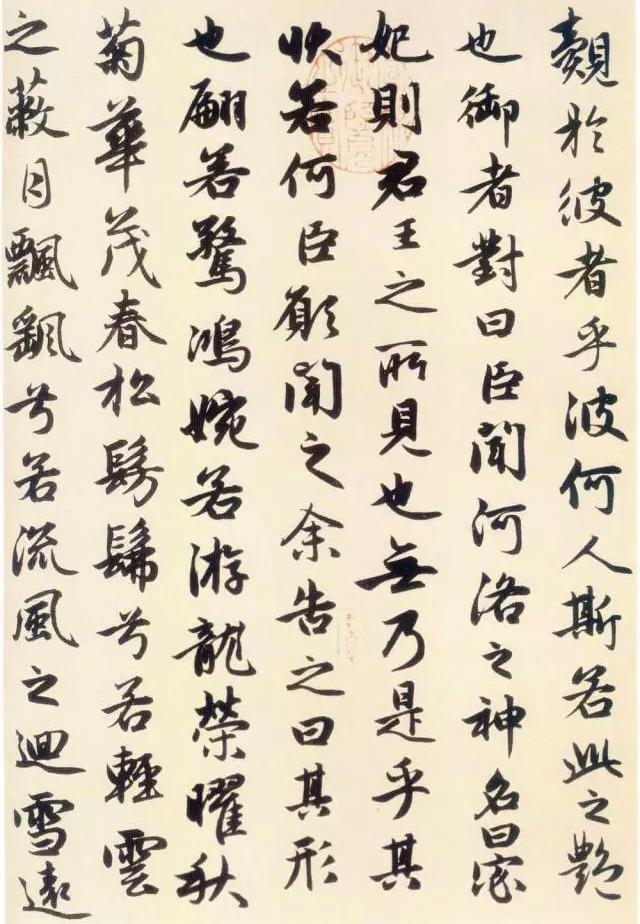 覿於彼者乎波何人斯若此之艷
也御者對曰臣聞河洛之神名曰宓
妃則君王之所見也無乃是乎其
狀若何臣願聞之余告之曰其形
也翩若驚鴻婉若游龍榮曜秋
菊華茂春松髣髴兮若輕雲
之蔽月飄颻兮若流風之迴雪遠